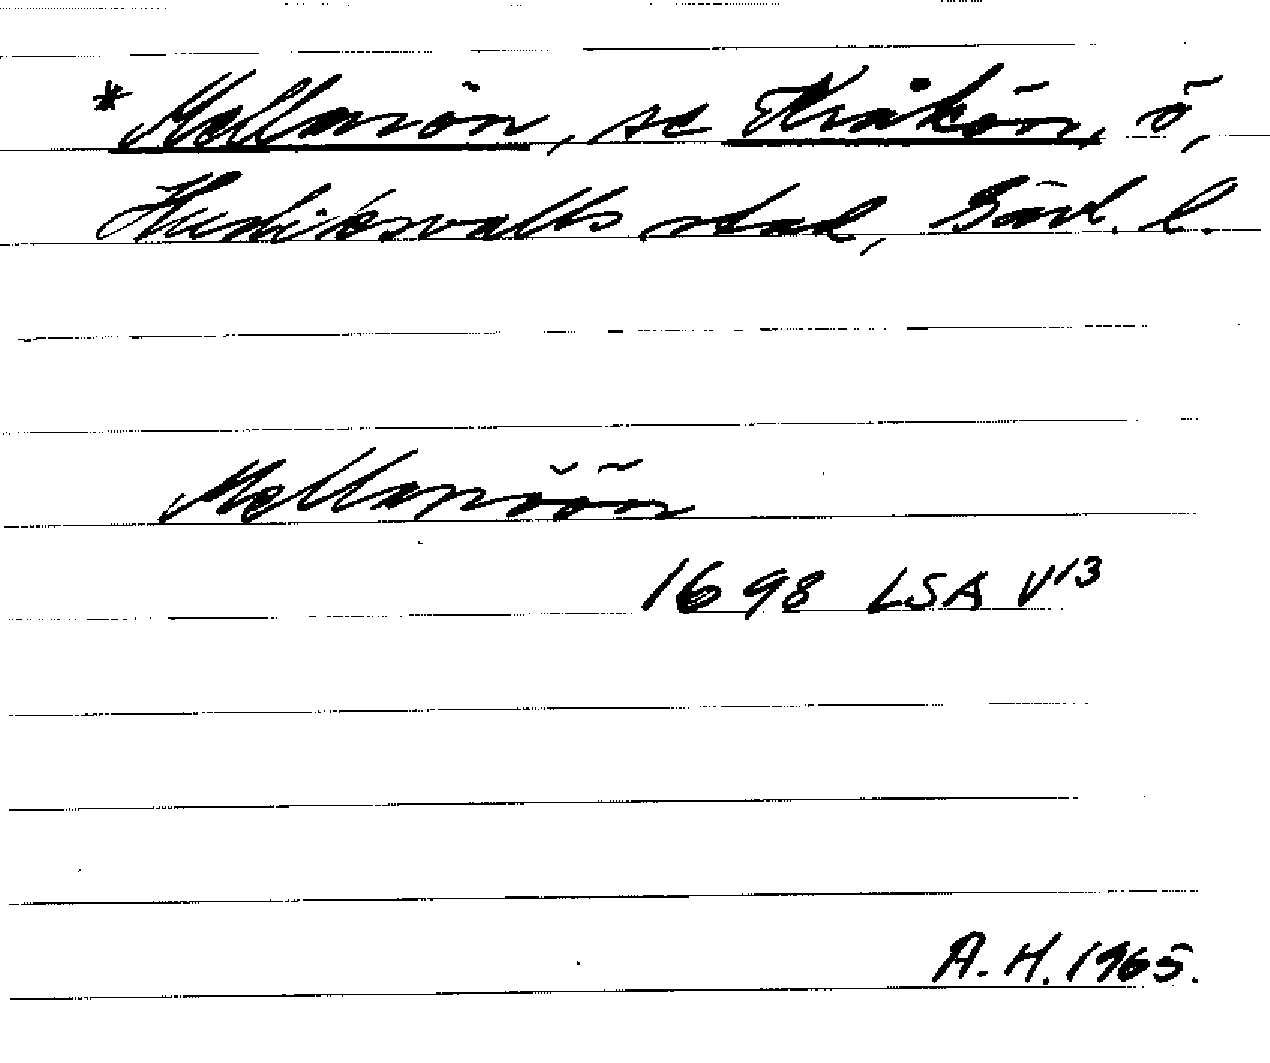 * Mellanön, se Kråkön, ö,
Hudiksvalls stad, Gävl. l.
Mellanöön
1698 LSA V13
A. H. 1965.